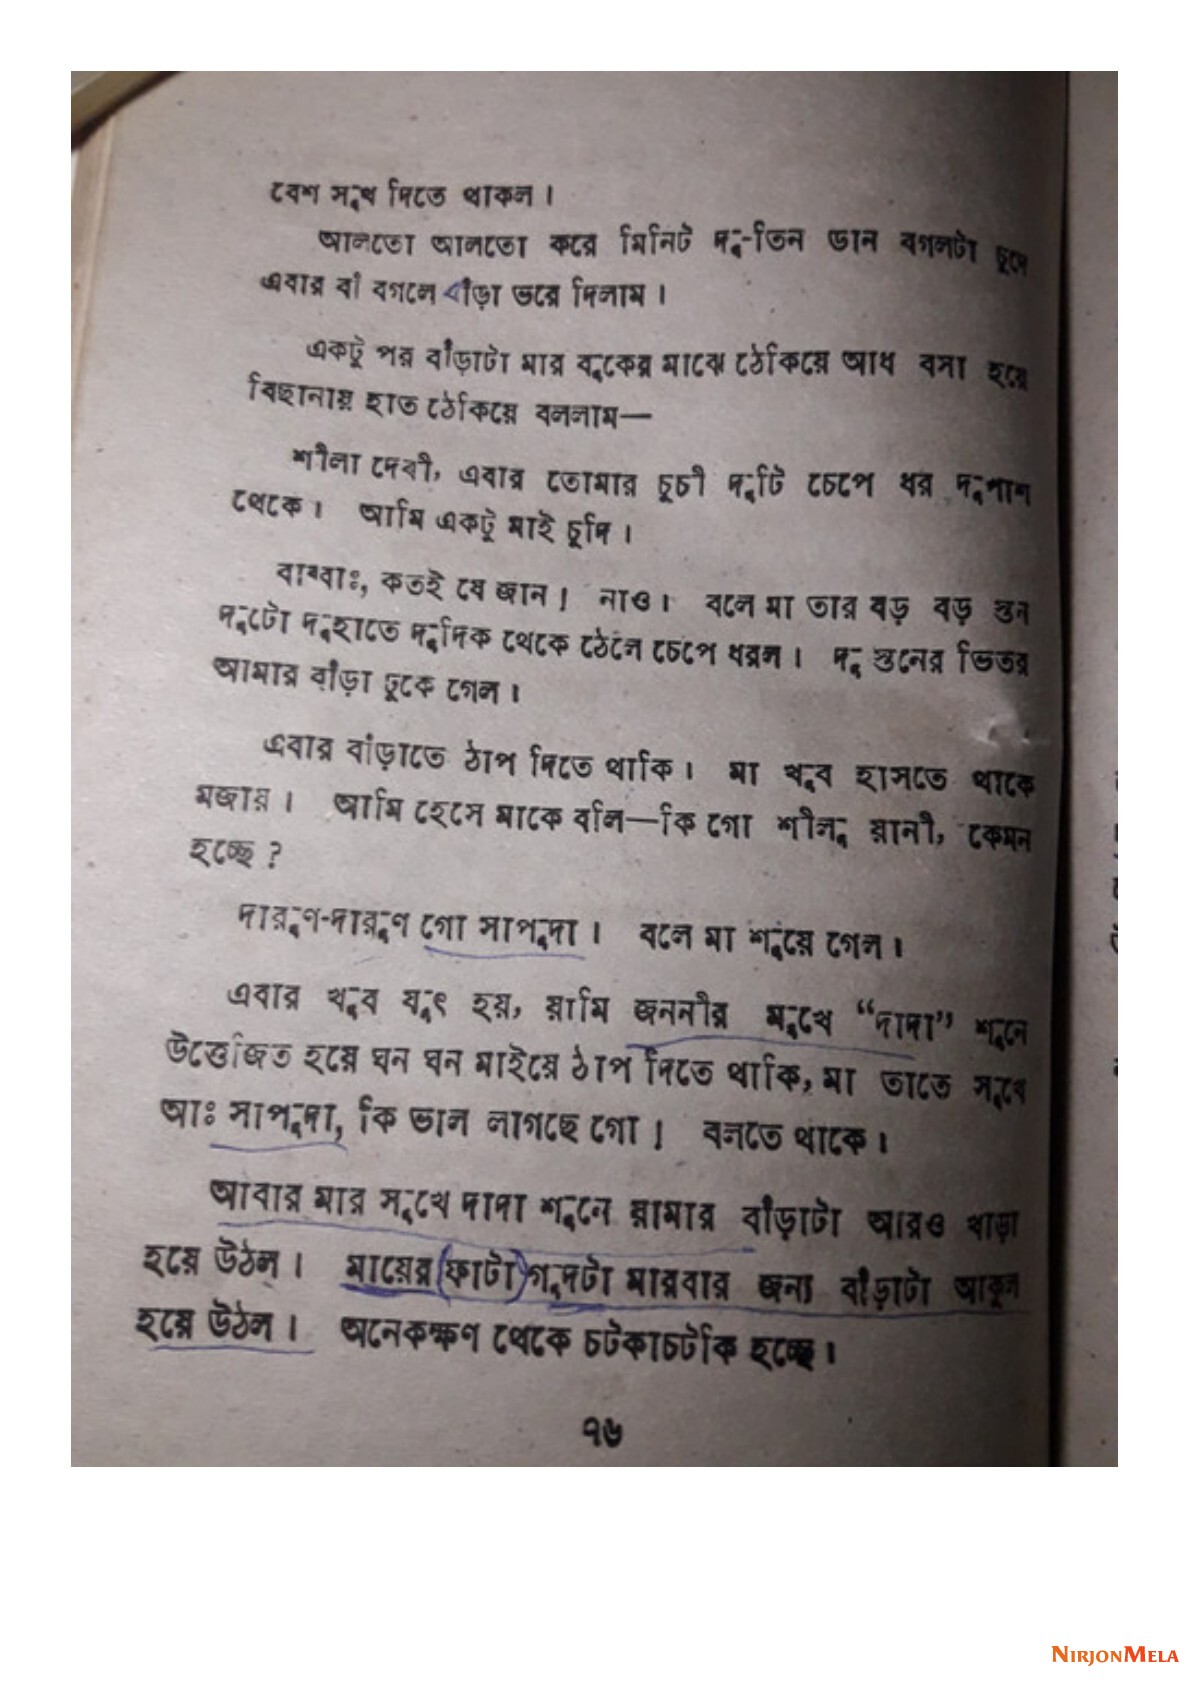 বেশ সুখ দিতে থাকল।
আলতো আলতো করে মিনিট দু-তিন ডান বগলটা চুদে
এবার বাঁ বগলে বাঁড়া ভরে দিলাম।
একটু পর বাঁড়াটা মার বুকের মাঝে ঠেকিয়ে আধ বসা হয়ে
বিছানায় হাত ঠেকিয়ে বললাম—
শীলা দেবী, এবার তোমার চুচী দুটি চেপে ধর দুপাশ
থেকে। আমি একটু মাই চুদি।
বাব্বাঃ, কতই যে জান! নাও। বলে মা তার বড় বড় স্তন
দুটো দুহাতে দুদিক থেকে ঠেলে চেপে ধরল। দু স্তনের ভিতর
আমার বাঁড়া ঢুকে গেল।
এবার বাঁড়াতে ঠাপ দিতে থাকি। মা খুব হাসতে থাকে
মজায়। আমি হেসে মাকে বলি—কি গো শীলু রানী, কেমন
হচ্ছে?
দারুণ-দারুণ গো সাপুদা। বলে মা শুয়ে গেল।
এবার খুব যুৎ হয়, য়ামি জননীর মুখে “দাদা” শুনে
উত্তেজিত হয়ে ঘন ঘন মাইয়ে ঠাপ দিতে থাকি, মা তাতে সুখে
আঃ সাপুদা, কি ভাল লাগছে গো! বলতে থাকে।
আবার মার সুখে দাদা শুনে য়ামার বাঁড়াটা আরও খাড়া
হয়ে উঠল। মায়ের (ফাটা) গুদটা মারবার জন্য বাঁড়াটা আকুল
হয়ে উঠল। অনেকক্ষণ থেকে চটকাচটকি হচ্ছে।
৭৬
NIRJONMELA